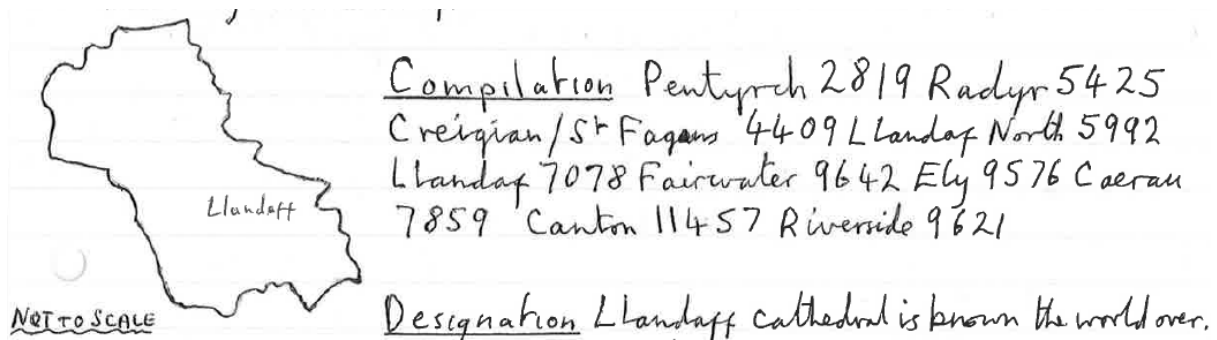 Compilation Pentyrch 2819 Radyr 5425
Creigian/St Fagans 4409 Llandaf North 5992
Llandaf 7078 Fairwater 9642 Ely 9576 Caerau
7859 Canton 11457 Riverside 9621
Llandaff
NOT TO SCALE
Designation Llandaff cathedral is known the world over.